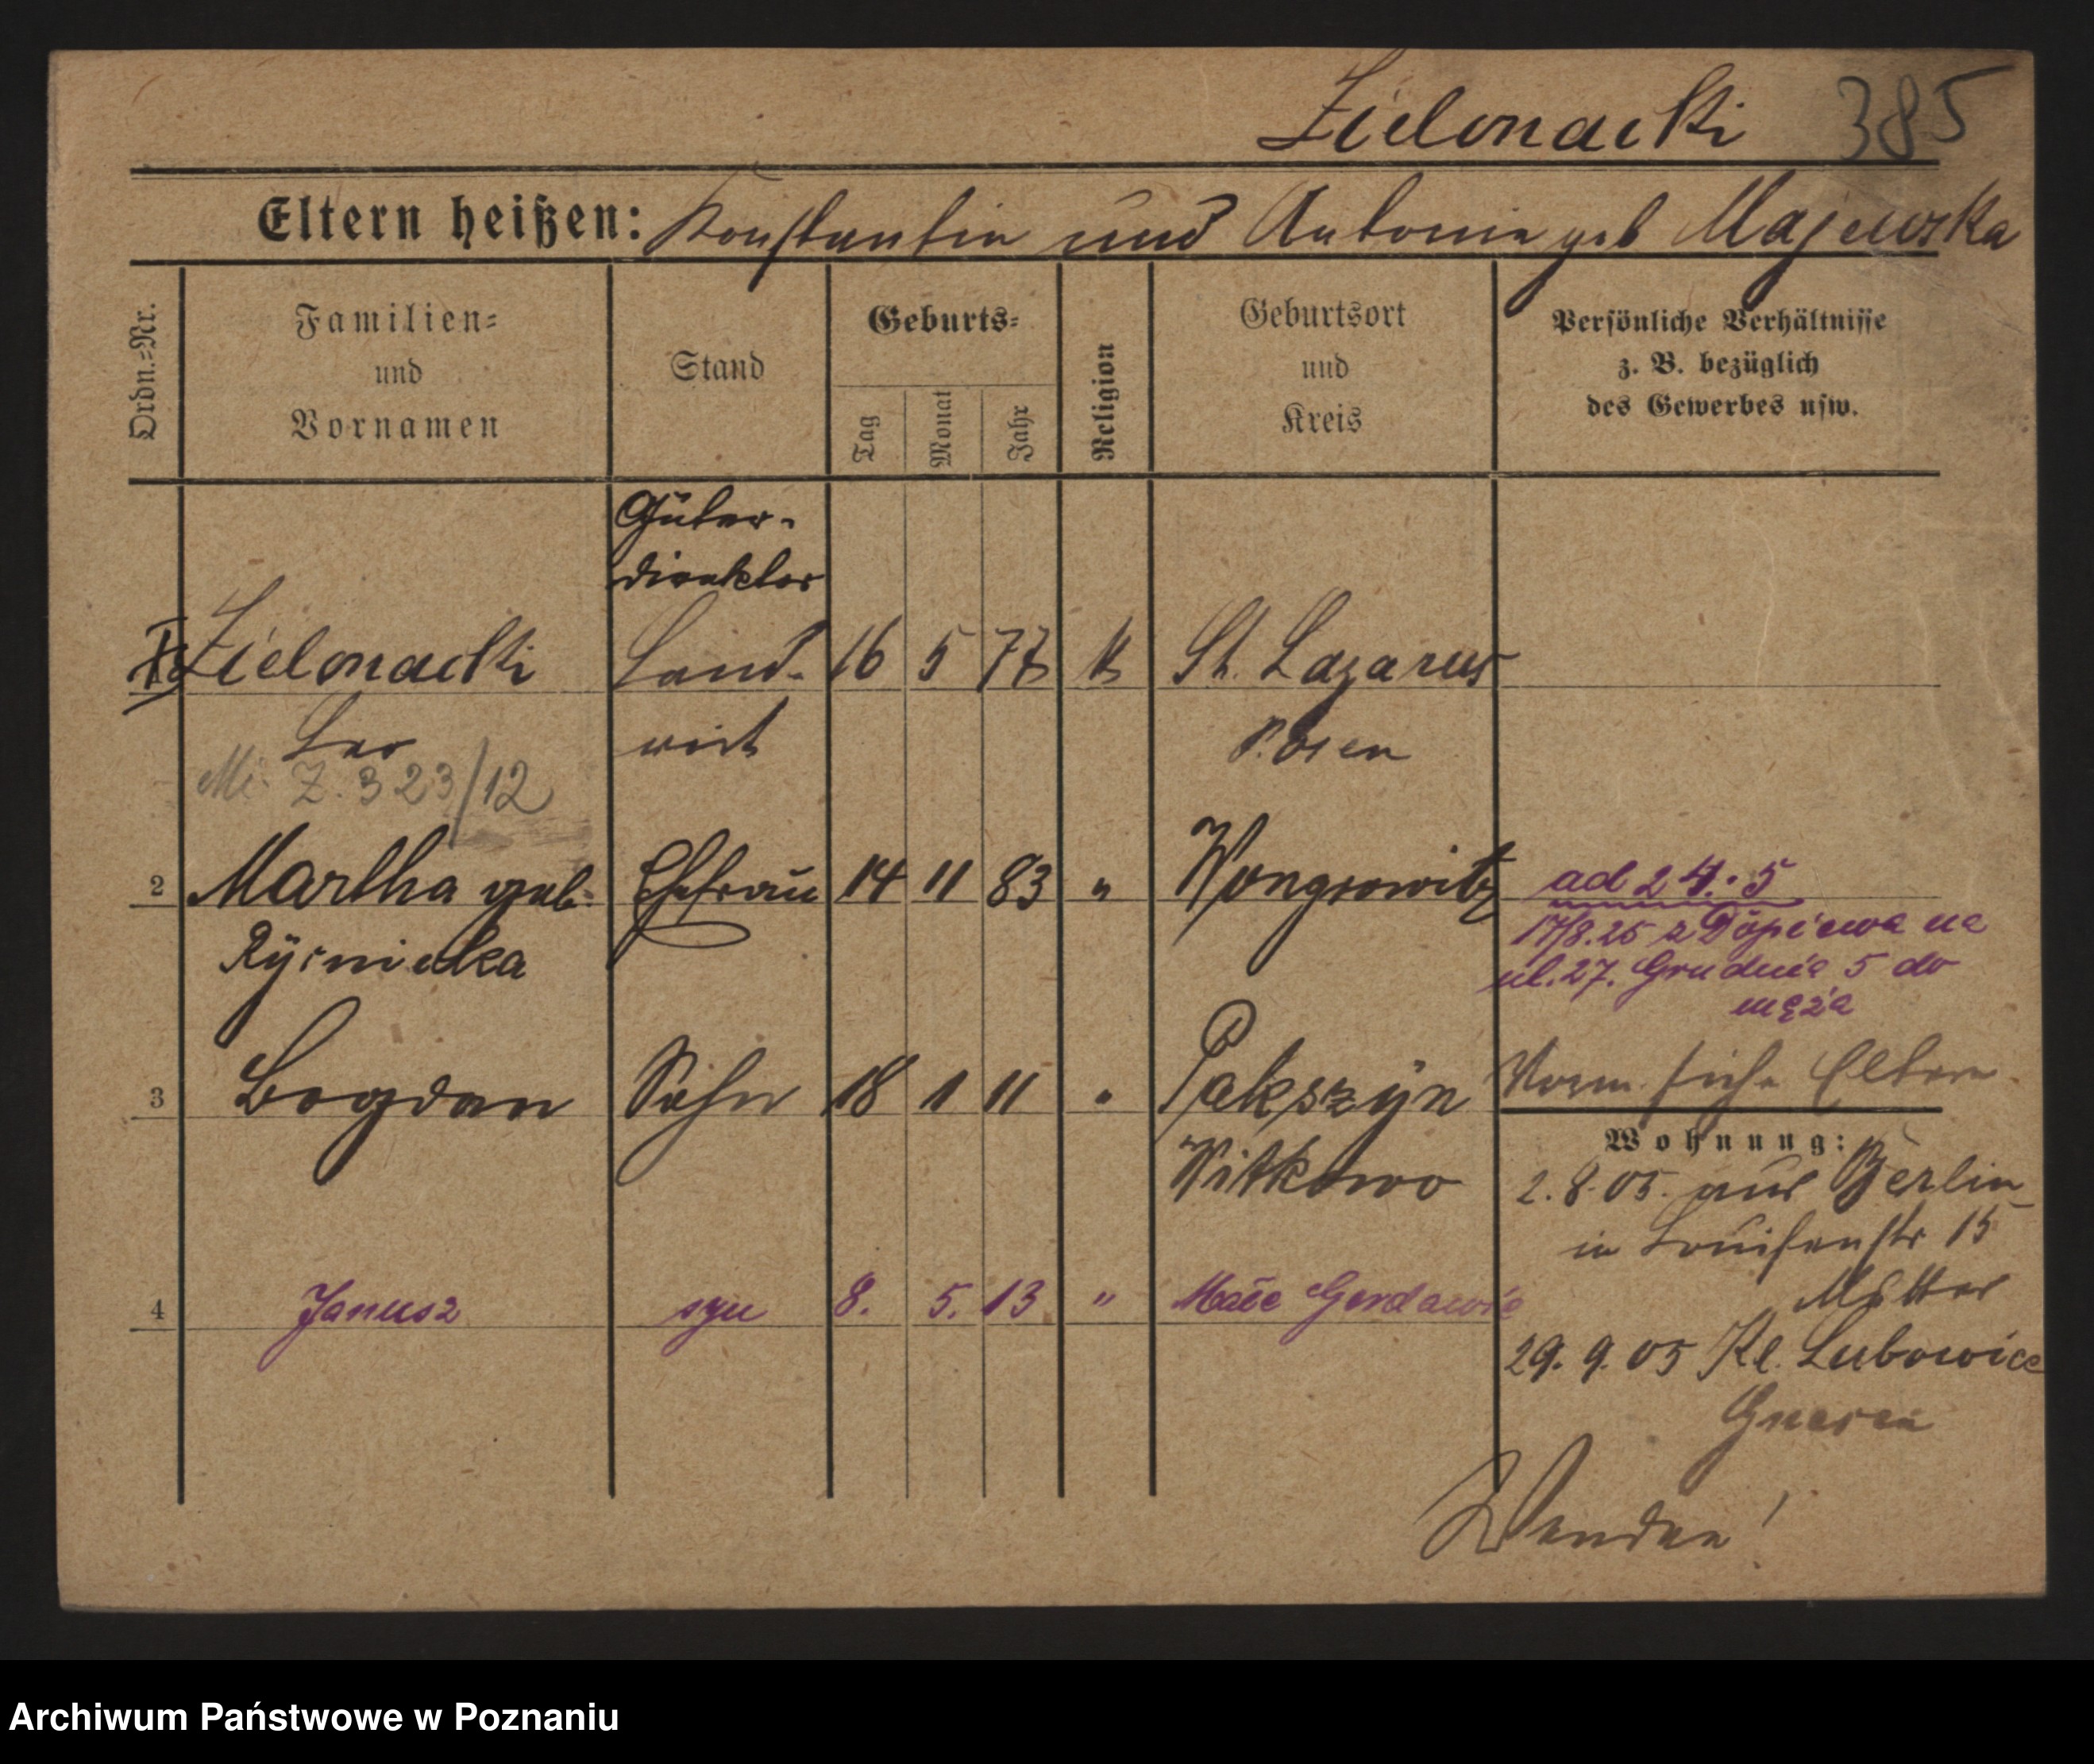 Zielonacki 385
Eltern heißen: Konstantin und Antonie geb Majewska
Ordn.=Nr.
Familien=
und
Vornamen
Stand
Geburts=
Tag
Monat
Jahr
Religion
Geburtsort
und
Kreis
Persönliche Verhältnisse
z. B. bezüglich
des Gewerbes usw.
Güter-
direktor
Zielonacki Land- 16 5 77 k St. Lazarus
Leo wirt Posen
Z. 323/12
2 Martha geb. Ehefrau 14 11 83 " Wongrowitz
ad 2 4. 5
17/8.25 z Dopiewa na
ul. 27. Grudnia 5 do
męża
3 Bogdan Sohn 18 1 11 " Pakszyn
Witkowo
Vorm. siehe Eltern
Wohnung:
2. 8. 05. aus Berlin
in Louisenstr 15
Mutter
4 Janusz syn 8. 5. 13 " Małe
29. 9. 05 Kl. Lubowice
Gnesen
Wenden!
Archiwum Państwowe w Poznaniu